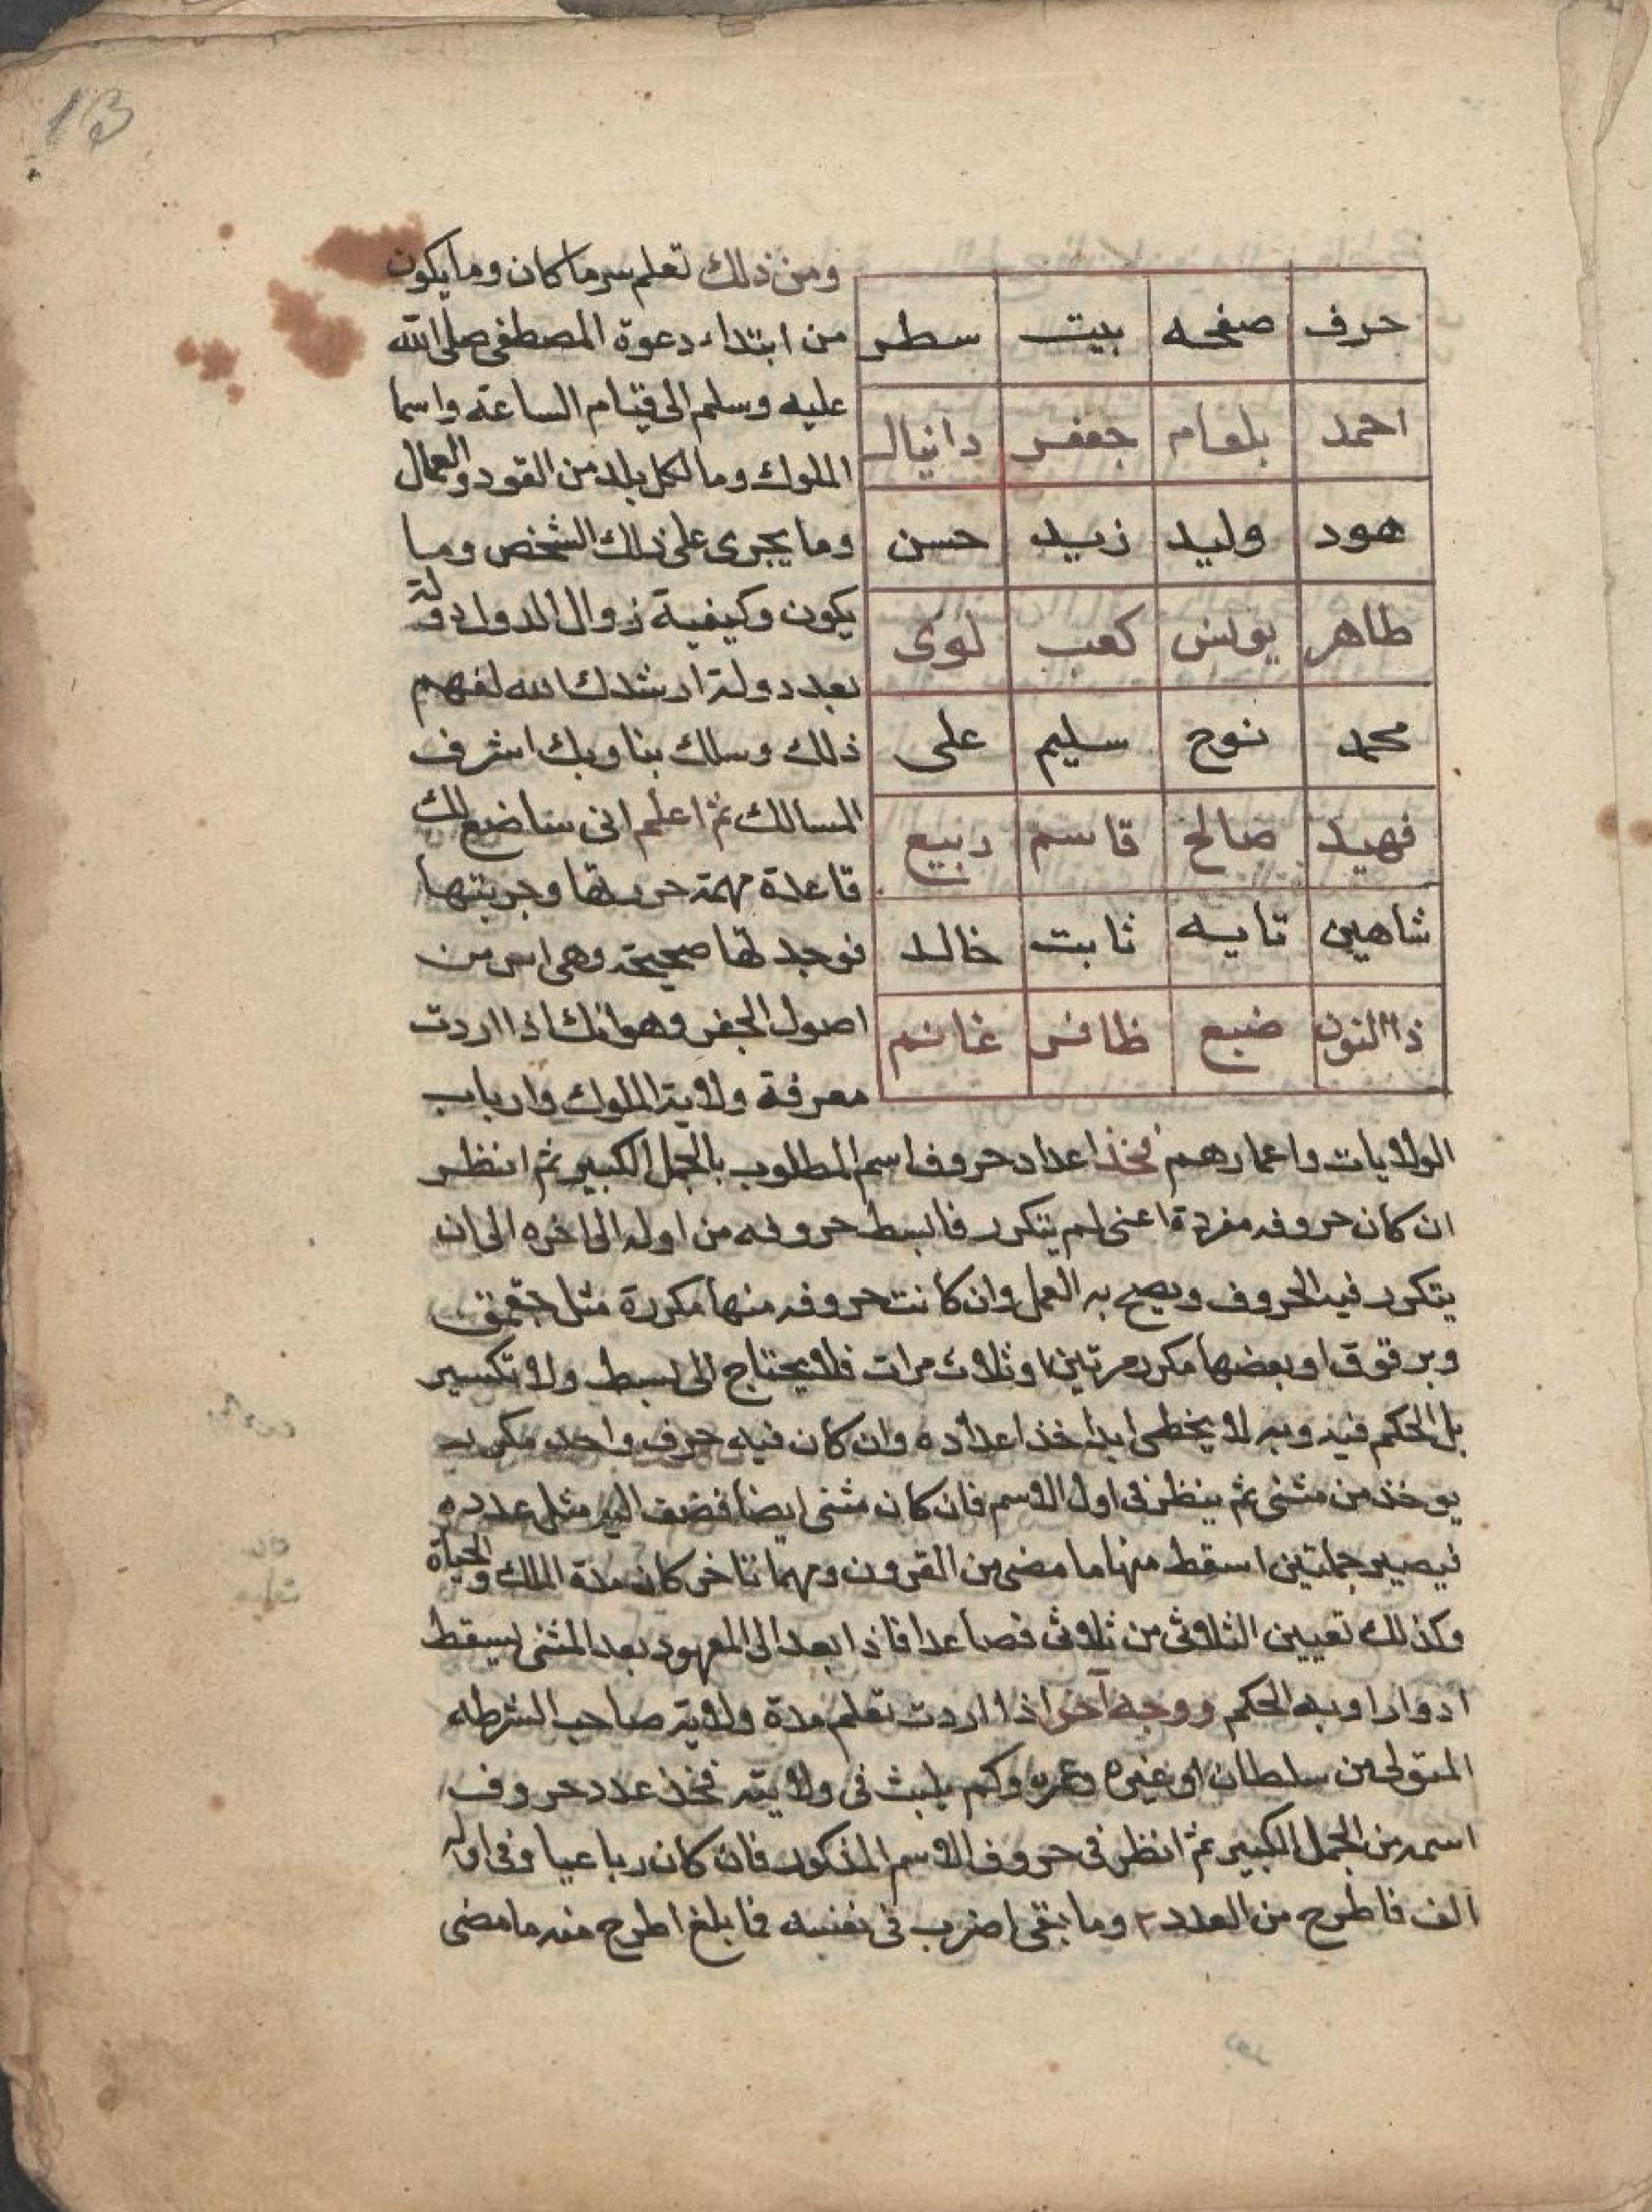 13
حرف صفحه بيت سطر
احمد بلعام جعفر دانيال
هود وليد زيد حسن
طاهر يونس كعب لوى
محمد نوح سليم على
فهيد صالح قاسم ربيع
شاهين تايه ثابت خالد
ذاالنون ضبع ظافر غانم
ومن ذلك تعلم سر ما كان وما يكون
من ابتداء دعوة المصطفى صلى الله
عليه وسلم الى قيام الساعة واسما
الملوك وما لكل بلد من القود والعمال
وما يجرى على ذلك الشخص وما
يكون وكيفية زوال الدول دولة
بعد دولة ارشدك الله لفهم
ذلك وسلك بنا وبك اشرف
المسالك ثم اعلم انى ساضع لك
قاعدة مهمة حررتها وجربتها
فوجدتها صحيحة وهى اس من
اصول الجفر وهو انك اذا اردت
معرفة ولاية الملوك وارباب
الولايات واعمارهم فخذ اعداد حروف اسم المطلوب بالجمل الكبير ثم انظر
ان كان حروفه مفردة اعنى لم يتكرر فابسط حروفه من اوله الى اخره الى ان
يتكرر فيه الحروف ويصح به العمل وان كانت حروفه منها مكررة مثل جقمق
وبرقوق او بعضها مكرر مرتين او ثلاث مرات فلا يحتاج الى بسط ولا تكسير
بل الحكم فيه وبه لا يخطى ابدا خذ اعداده وان كان فيه حرف واحد مكرر
يوخذ من مثنى ثم ينظر فى اول الاسم فان كان مثنى ايضا فضف اليه مثل عدده
فيصير جملتين اسقط منها ما مضى من القرون ومهما تاخر كان مدة الملك والحياة
وكذلك تعيين الثلاثى من ثلاثى فصاعدا فاذا بعد الى المعهود بعد المثنى يسقط
ادوارا وبه الحكم ووجه آخر اذا اردت تعلم مدة ولاية صاحب الشرطه
المتولى من سلطان او غيره وعمره وكم يلبث فى ولايته فخذ عدد حروف
اسمه من الجمل الكبير ثم انظر فى حروف الاسم المذكور فان كان رباعيا وفى اوله
الف فاطرح من العدد ٣ وما بقى اضرب فى نفسه فما بلغ اطرح منه ما مضى